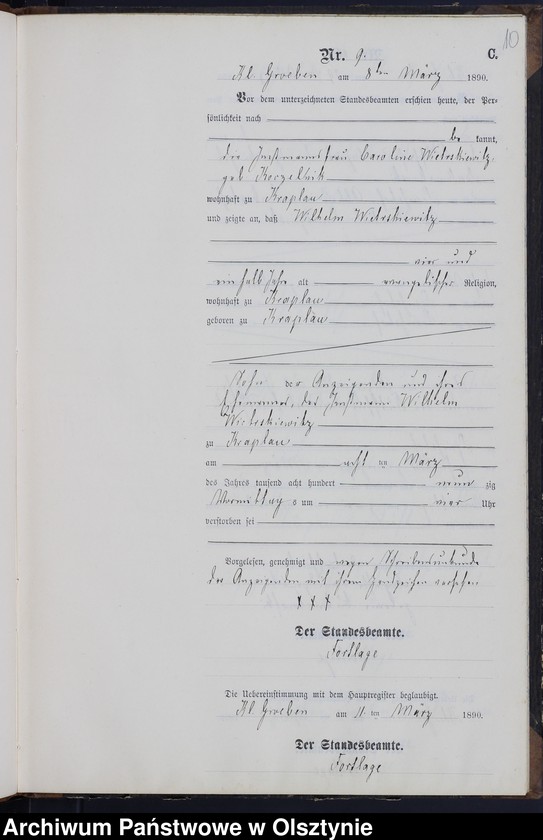 10
Nr. 9. C.
Kl. Groeben am 8ten März 1890.
Vor dem unterzeichneten Standesbeamten erschien heute, der Per-
sönlichkeit nach
be kannt,
die Instmannsfrau Caroline Wietrskiewitz
geb
wohnhaft zu Kraplau
und zeigte an, daß Wilhelm Wietrskiewitz
vier und
ein halb Jahr alt evangelischer Religion,
wohnhaft zu Kraplau
geboren zu Kraplau
Sohn der Anzeigenden und ihres
Ehemannes, des Instmann Wilhelm
Wietrskiewitz
zu Kraplau
am acht ten März
des Jahres tausend acht hundert neun zig
Vormittag s um vier Uhr
verstorben sei
Vorgelesen, genehmigt und wegen Schreibensunkunde
der Anzeigenden mit ihrem Handzeichen versehen
+ + +
Der Standesbeamte.
Fortlage
Die Uebereinstimmung mit dem Hauptregister beglaubigt.
Kl. Groeben am 11 ten März 1890.
Der Standesbeamte.
Fortlage
Archiwum Państwowe w Olsztynie